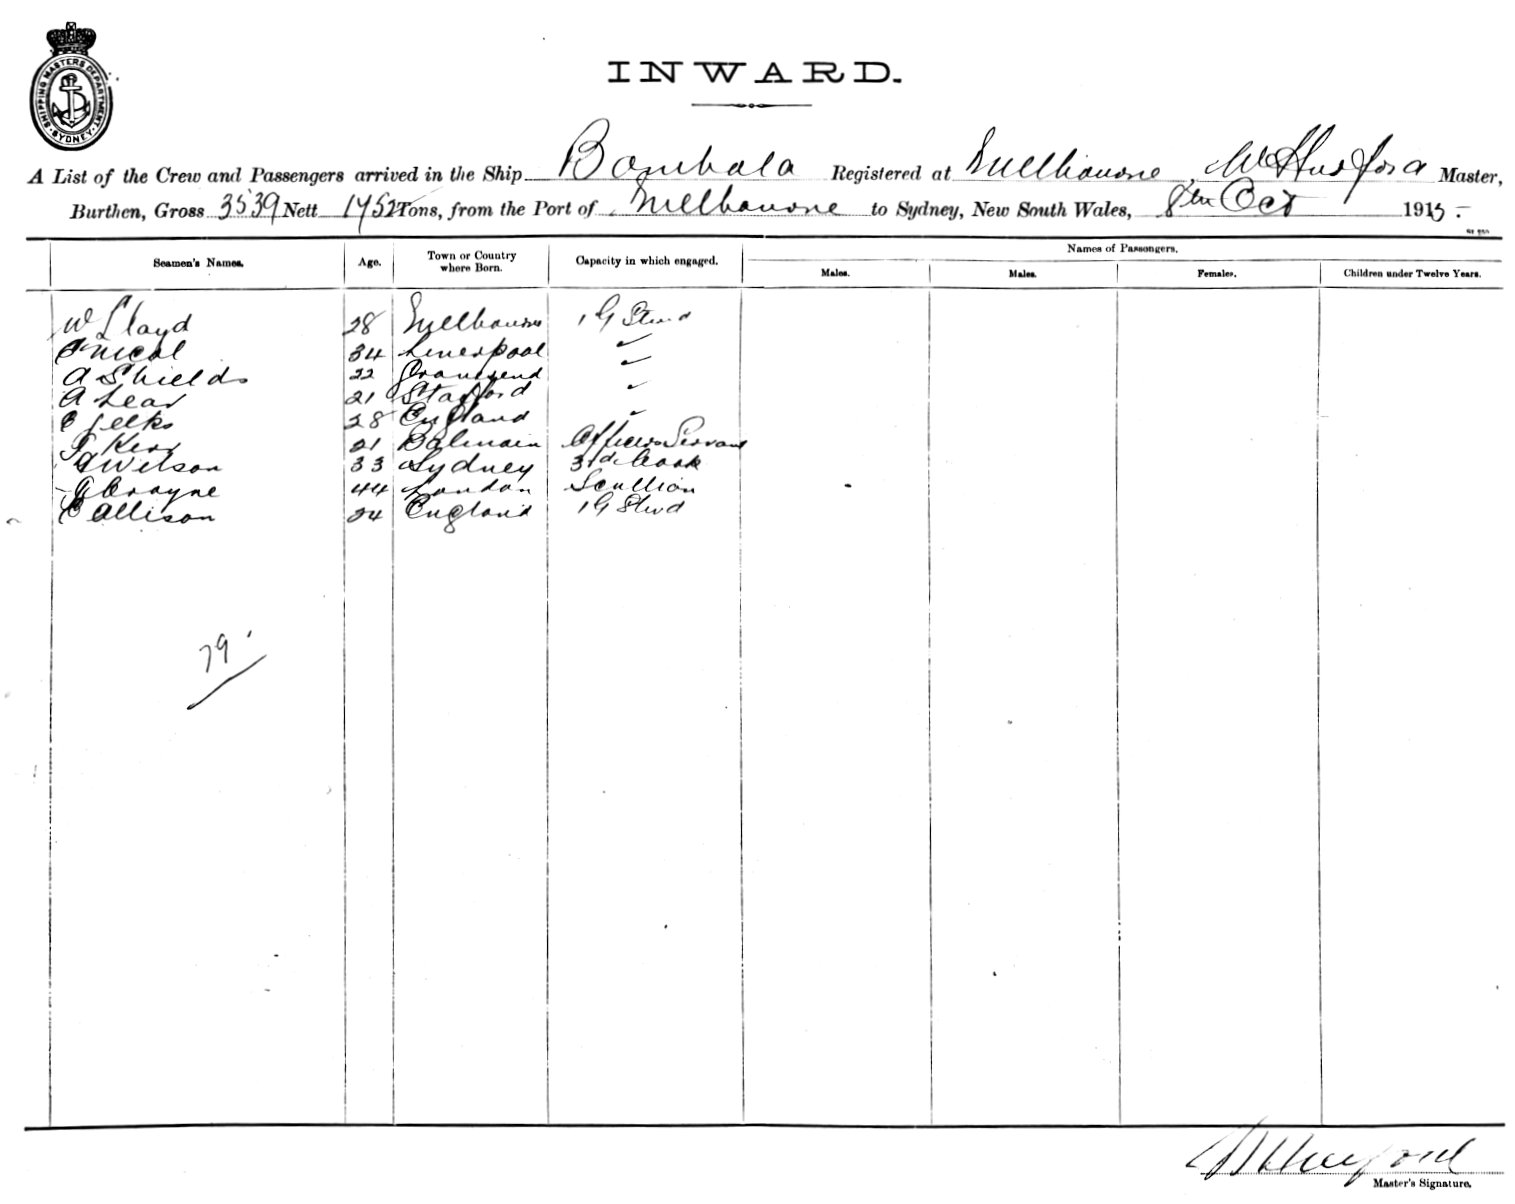 SHIPPING MASTERS DEPARTMENT · SYDNEY ·
INWARD.
A List of the Crew and Passengers arrived in the Ship Bombala Registered at Melbourne, Master,
Burthen, Gross 3539 Nett 1752 Tons, from the Port of Melbourne to Sydney, New South Wales, 8th Oct 1915
Names of Passengers.
Seamen's Names. Age. Town or Country where Born. Capacity in which engaged. Males. Males. Females. Children under Twelve Years.
W Lloyd 28 Melbourne 1 G Stwd
Nicol 34 Liverpool "
A Shields 22 Gravesend "
A Lear 21 Stafford "
28 England "
Kerr 21 Balmain Officers Servant
Wilson 33 Sydney 3rd Cook
Crayne 44 London Scullion
C Allison 24 England 1 G Stwd
79
Master's Signature.